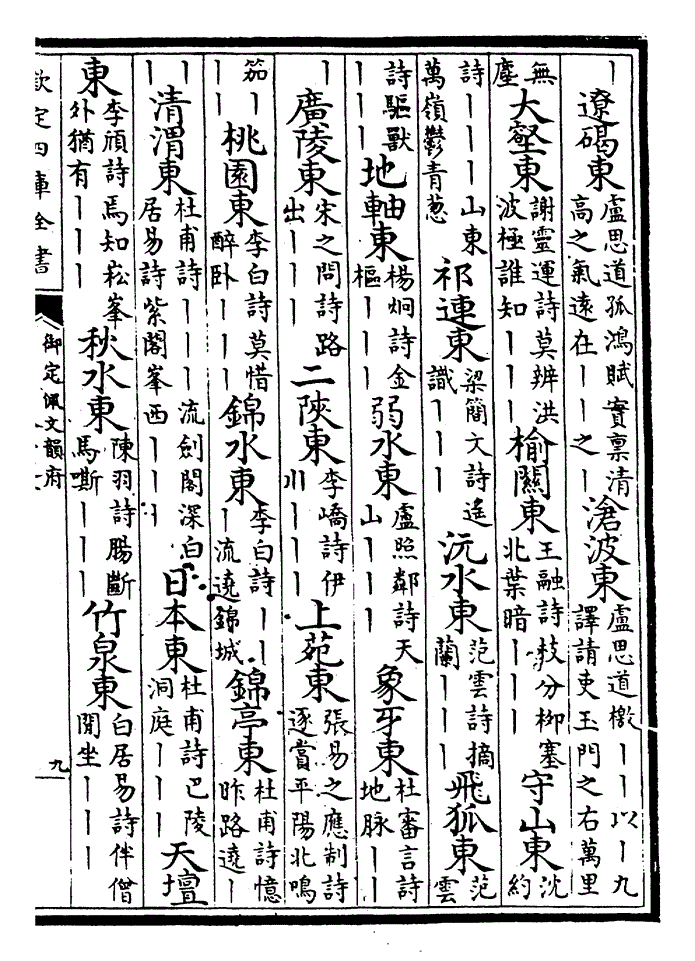 丨遼碣東盧思道孤鴻賦實禀清高之氣遠在丨丨之丨滄波東盧思道檄丨丨以丨九譯請吏玉門之右萬里
無塵大壑東謝靈運詩莫辨洪波極誰知丨丨丨榆關東王融詩枝分柳塞北葉暗丨丨丨守山東沈約
詩丨丨丨山東萬嶺鬱青葱祁連東梁簡文詩遙識丨丨丨沅水東范雲詩摘蘭丨丨丨飛狐東范雲
詩驅獸丨丨丨地軸東楊炯詩金樞丨丨丨弱水東盧照鄰詩天山丨丨丨象牙東杜審言詩地脉丨丨
丨廣陵東宋之問詩路出丨丨丨二陜東李嶠詩伊川丨丨丨上苑東張易之應制詩逐賞平陽北鳴
笳丨丨丨桃園東李白詩莫惜醉卧丨丨丨錦水東李白詩丨丨丨流遶錦城錦亭東杜甫詩憶昨路遶丨
丨丨清渭東杜甫詩丨丨丨流劍閣深白居易詩紫閣峯西丨丨丨日本東杜甫詩巴陵洞庭丨丨丨天壇
東李頎詩焉知崧峯外猶有丨丨丨秋水東陳羽詩腸斷馬嘶丨丨丨竹泉東白居易詩伴僧閒坐丨丨丨
欽定四庫全書
御定佩文韻府
九